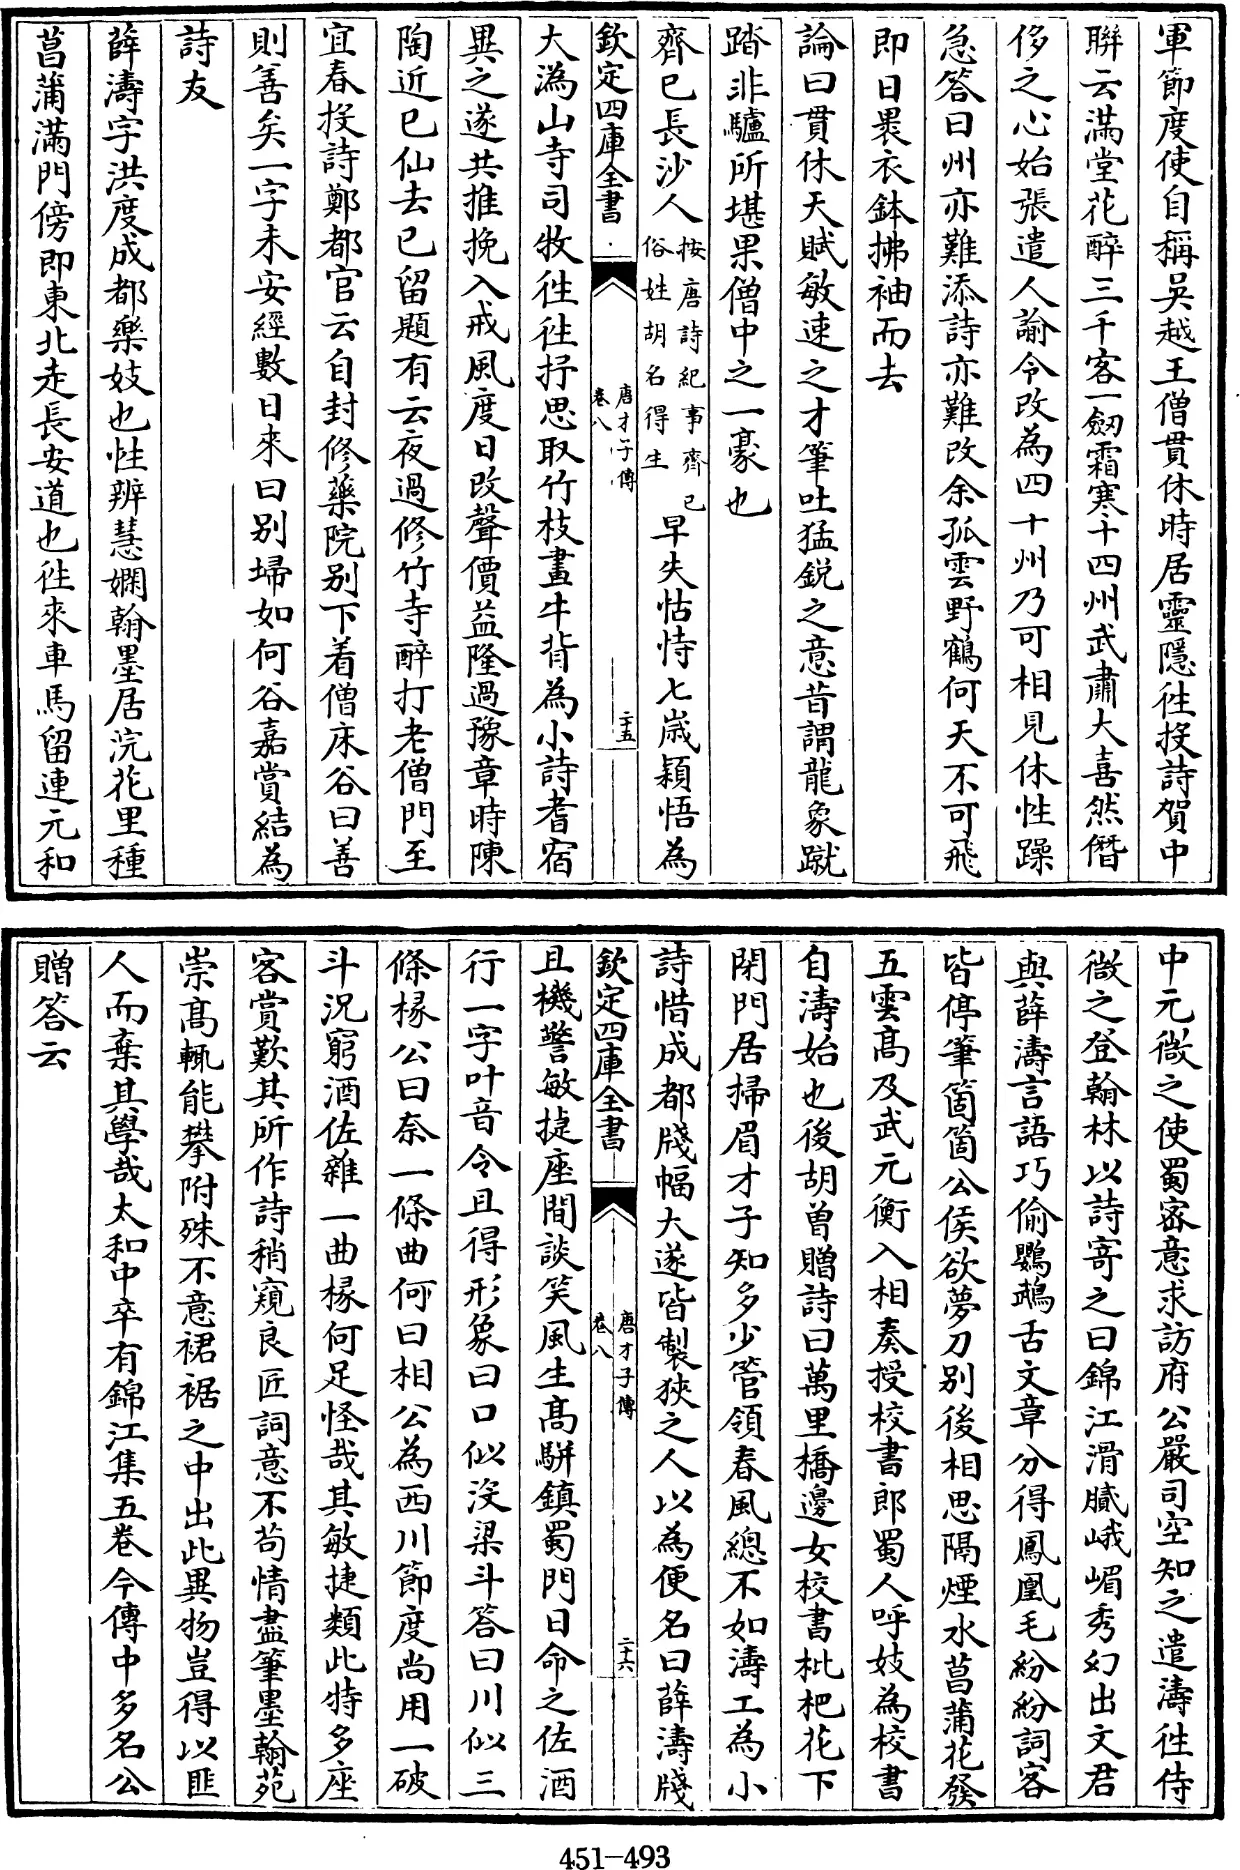 軍節度使自稱吳越王僧貫休時居靈隱徃投詩賀中
聯云滿堂花醉三千客一劒霜寒十四州武肅大喜然僭
侈之心始張遣人諭令改為四十州乃可相見休性躁
急答曰州亦難添詩亦難改余孤雲野鶴何天不可飛
即日褁衣鉢拂袖而去
論曰貫休天賦敏速之才筆吐猛鋭之意昔謂龍象蹴
踏非驢所堪果僧中之一豪也
齊已長沙人按唐詩紀事齊已俗姓胡名得生早失怙恃七歲穎悟為
欽定四庫全書
唐才子傳
卷八
二十五
大溈山寺司牧徃徃抒思取竹枝畫牛背為小詩耆宿
異之遂共推挽入戒風度日改聲價益隆過豫章時陳
陶近已仙去已留題有云夜過修竹寺醉打老僧門至
宜春投詩鄭都官云自封修藥院别下着僧床谷曰善
則善矣一字未安經數日來曰别埽如何谷嘉賞結為
詩友
薛濤字洪度成都樂妓也性辨慧嫻翰墨居浣花里種
菖蒲滿門傍即東北走長安道也徃來車馬留連元和
中元微之使蜀密意求訪府公嚴司空知之遣濤徃侍
微之登翰林以詩寄之曰錦江滑膩峨嵋秀幻出文君
與薛濤言語巧偷鸚鵡舌文章分得鳳凰毛紛紛詞客
皆停筆箇箇公侯欲夢刀别後相思隔煙水菖蒲花發
五雲髙及武元衡入相奏授校書郎蜀人呼妓為校書
自濤始也後胡曾贈詩曰萬里橋邊女校書枇杷花下
閉門居掃眉才子知多少管領春風總不如濤工為小
詩惜成都牋幅大遂皆製狹之人以為便名曰薛濤牋
欽定四庫全書
唐才子傳
卷八
二十六
且機警敏捷座間談笑風生髙駢鎮蜀門日命之佐酒
行一字叶音令且得形象曰口似没梁斗答曰川似三
條椽公曰奈一條曲何曰相公為西川節度尚用一破
斗況窮酒佐雜一曲椽何足怪哉其敏捷類此特多座
客賞歎其所作詩稍窺良匠詞意不茍情盡筆墨翰苑
崇髙輒能攀附殊不意裙裾之中出此異物豈得以匪
人而棄其學哉太和中卒有錦江集五卷今傳中多名公
贈答云
451-493